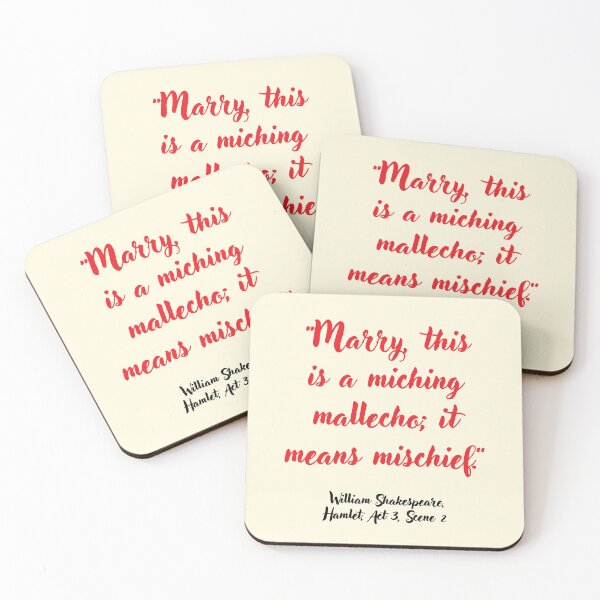 "Marry, this
is a miching
mallecho; it
"Marry, this
is a miching
mallecho; it
means mischief."
"Marry, this
is a miching
mallecho; it
means
William
Hamlet, Act 3
"Marry, this
is a miching
mallecho; it
means mischief."
William Shakespeare,
Hamlet, Act 3, Scene 2